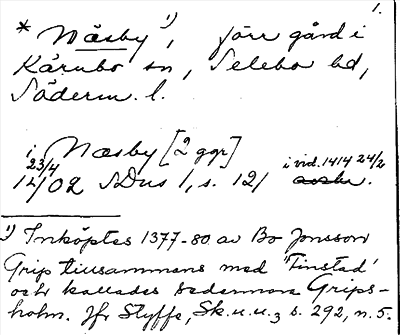 1.
* Näsby ¹), förr gård i
Kärnbo sn, Selebo hd,
Söderm. l.
i Næsby [2 ggr]
23/4 12/02 SDns 1, s. 121 i vid. 1414 24/2 avskr.
¹) Inköptes 1377-80 av Bo Jonsson
Grip tillsammans med 'Tinstad'
och kallades sedermera Grips-
holm. Jfr Styffe, Sk. u. u. 3 s. 292, n. 5.